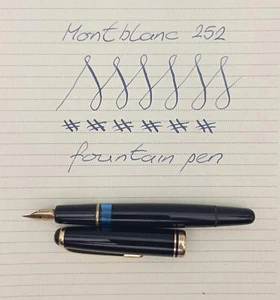 Montblanc 252
# # # # # #
fountain pen